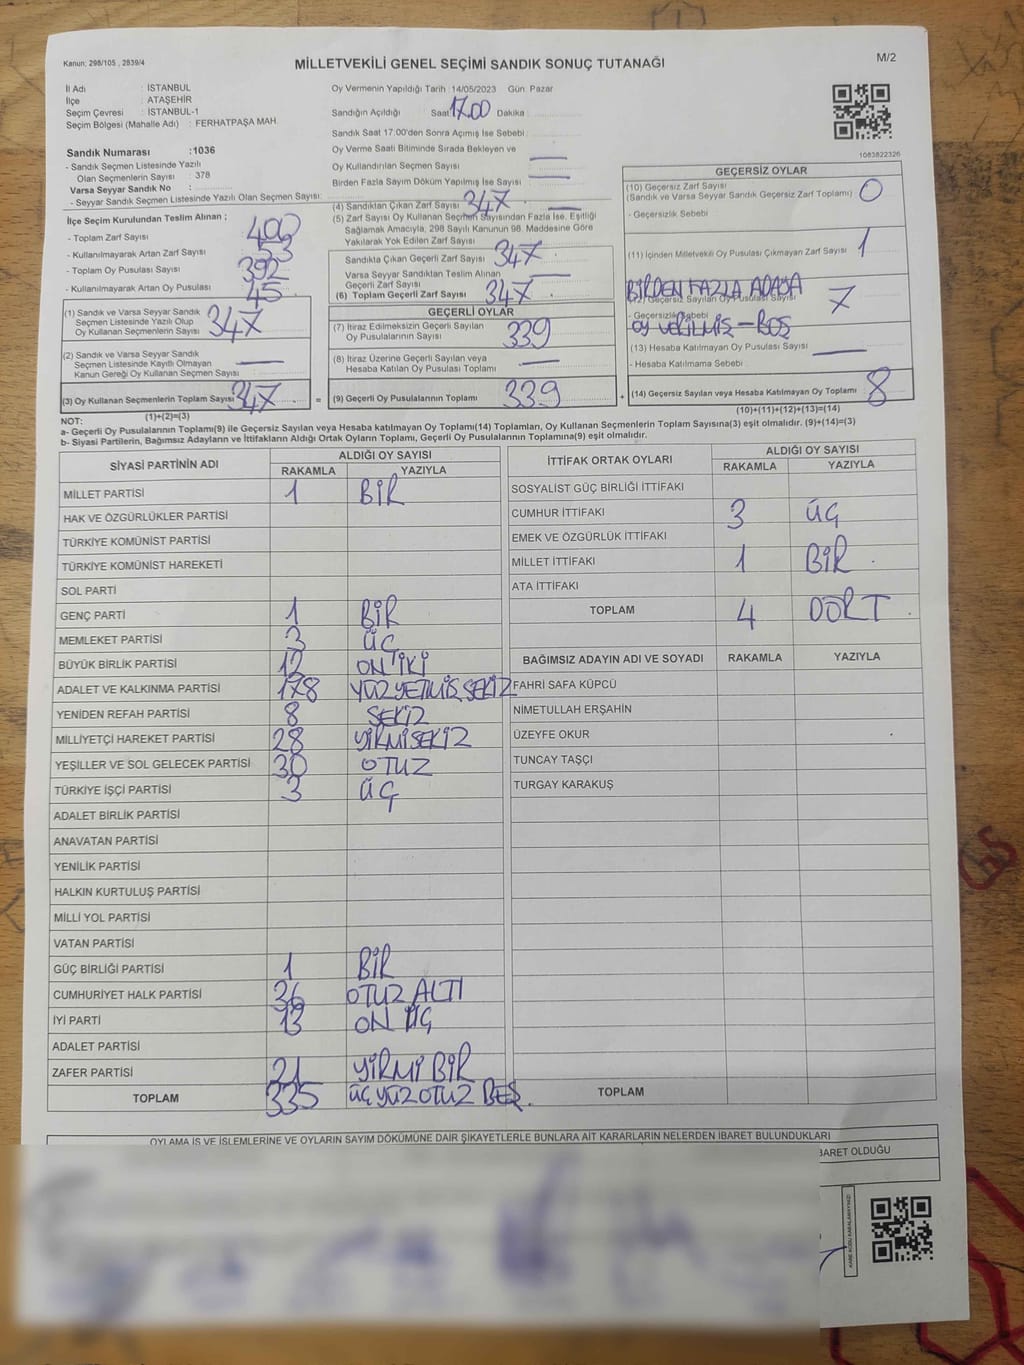 Kanun; 298/105 , 2839/4
MİLLETVEKİLİ GENEL SEÇİMİ SANDIK SONUÇ TUTANAĞI
M/2
İl Adı : İSTANBUL
İlçe : ATAŞEHİR
Seçim Çevresi : İSTANBUL-1
Seçim Bölgesi (Mahalle Adı) : FERHATPAŞA MAH.
Sandık Numarası : 1036
- Sandık Seçmen Listesinde Yazılı
Olan Seçmenlerin Sayısı : 378
Varsa Seyyar Sandık No :
- Seyyar Sandık Seçmen Listesinde Yazılı Olan Seçmen Sayısı:
Oy Vermenin Yapıldığı Tarih : 14/05/2023 Gün: Pazar
Sandığın Açıldığı : Saat 17.00 Dakika :
Sandık Saat 17:00'den Sonra Açımış İse Sebebi :
Oy Verme Saati Bitiminde Sırada Bekleyen ve
Oy Kullandırılan Seçmen Sayısı —
Birden Fazla Sayım Döküm Yapılmış İse Sayısı —
1083822326
İlçe Seçim Kurulundan Teslim Alınan ;
- Toplam Zarf Sayısı 400
- Kullanılmayarak Artan Zarf Sayısı 53
- Toplam Oy Pusulası Sayısı 392
- Kullanılmayarak Artan Oy Pusulası 45
(1) Sandık ve Varsa Seyyar Sandık
Seçmen Listesinde Yazılı Olup
Oy Kullanan Seçmenlerin Sayısı 347
(2) Sandık ve Varsa Seyyar Sandık
Seçmen Listesinde Kayıtlı Olmayan
Kanun Gereği Oy Kullanan Seçmen Sayısı —
(3) Oy Kullanan Seçmenlerin Toplam Sayısı 347
(1)+(2)=(3)
(4) Sandıktan Çıkan Zarf Sayısı 347
(5) Zarf Sayısı Oy Kullanan Seçmen Sayısından Fazla İse, Eşitliği
Sağlamak Amacıyla, 298 Sayılı Kanunun 98. Maddesine Göre
Yakılarak Yok Edilen Zarf Sayısı —
Sandıkta Çıkan Geçerli Zarf Sayısı 347
Varsa Seyyar Sandıktan Teslim Alınan
Geçerli Zarf Sayısı —
(6) Toplam Geçerli Zarf Sayısı 347
GEÇERLİ OYLAR
(7) İtiraz Edilmeksizin Geçerli Sayılan
Oy Pusulalarının Sayısı 339
(8) İtiraz Üzerine Geçerli Sayılan veya
Hesaba Katılan Oy Pusulası Toplamı —
= (9) Geçerli Oy Pusulalarının Toplamı 339
GEÇERSİZ OYLAR
(10) Geçersiz Zarf Sayısı
(Sandık ve Varsa Seyyar Sandık Geçersiz Zarf Toplamı) 0
- Geçersizlik Sebebi
(11) İçinden Milletvekili Oy Pusulası Çıkmayan Zarf Sayısı 1
BİRDEN FAZLA ADAYA
(12) Geçersiz Sayılan Oy Pusulası Sayısı 7
- Geçersizlik Sebebi
OY VERİLMİŞ - BOŞ
(13) Hesaba Katılmayan Oy Pusulası Sayısı —
- Hesaba Katılmama Sebebi
+ (14) Geçersiz Sayılan veya Hesaba Katılmayan Oy Toplamı 8
(10)+(11)+(12)+(13)=(14)
NOT:
a- Geçerli Oy Pusulalarının Toplamı(9) ile Geçersiz Sayılan veya Hesaba katılmayan Oy Toplamı(14) Toplamları, Oy Kullanan Seçmenlerin Toplam Sayısına(3) eşit olmalıdır. (9)+(14)=(3)
b- Siyasi Partilerin, Bağımsız Adayların ve İttifakların Aldığı Ortak Oyların Toplamı, Geçerli Oy Pusulalarının Toplamına(9) eşit olmalıdır.
SİYASİ PARTİNİN ADI
ALDIĞI OY SAYISI
RAKAMLA YAZIYLA
MİLLET PARTİSİ 1 BİR
HAK VE ÖZGÜRLÜKLER PARTİSİ
TÜRKİYE KOMÜNİST PARTİSİ
TÜRKİYE KOMÜNİST HAREKETİ
SOL PARTİ
GENÇ PARTİ 1 BİR
MEMLEKET PARTİSİ 3 ÜÇ
BÜYÜK BİRLİK PARTİSİ 12 ON İKİ
ADALET VE KALKINMA PARTİSİ 178 YÜZ YETMİŞ SEKİZ
YENİDEN REFAH PARTİSİ 8 SEKİZ
MİLLİYETÇİ HAREKET PARTİSİ 28 YİRMİ SEKİZ
YEŞİLLER VE SOL GELECEK PARTİSİ 30 OTUZ
TÜRKİYE İŞÇİ PARTİSİ 3 ÜÇ
ADALET BİRLİK PARTİSİ
ANAVATAN PARTİSİ
YENİLİK PARTİSİ
HALKIN KURTULUŞ PARTİSİ
MİLLİ YOL PARTİSİ
VATAN PARTİSİ
GÜÇ BİRLİĞİ PARTİSİ 1 BİR
CUMHURİYET HALK PARTİSİ 36 OTUZ ALTI
İYİ PARTİ 13 ON ÜÇ
ADALET PARTİSİ
ZAFER PARTİSİ 21 YİRMİ BİR
TOPLAM 335 ÜÇ YÜZ OTUZ BEŞ.
İTTİFAK ORTAK OYLARI
ALDIĞI OY SAYISI
RAKAMLA YAZIYLA
SOSYALİST GÜÇ BİRLİĞİ İTTİFAKI
CUMHUR İTTİFAKI 3 ÜÇ
EMEK VE ÖZGÜRLÜK İTTİFAKI
MİLLET İTTİFAKI 1 BİR
ATA İTTİFAKI
TOPLAM 4 DÖRT
BAĞIMSIZ ADAYIN ADI VE SOYADI RAKAMLA YAZIYLA
FAHRİ SAFA KÜPCÜ
NİMETULLAH ERŞAHİN
ÜZEYFE OKUR
TUNCAY TAŞÇI
TURGAY KARAKUŞ
TOPLAM
OYLAMA İŞ VE İŞLEMLERİNE VE OYLARIN SAYIM DÖKÜMÜNE DAİR ŞİKAYETLERLE BUNLARA AİT KARARLARIN NELERDEN İBARET BULUNDUKLARI
BARET OLDUĞU
KARE KODU KARALAMAYINIZ!